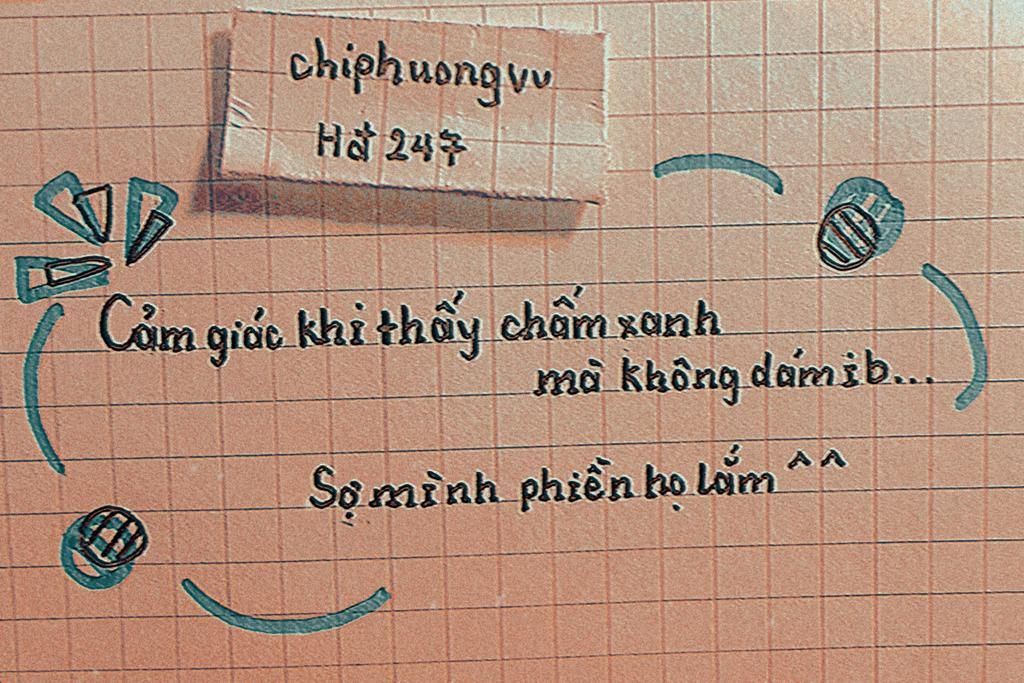 chiphuongvu
Hđ 247
Cảm giác khi thấy chấm xanh
mà không dám ib...
Sợ mình phiền họ lắm ^^